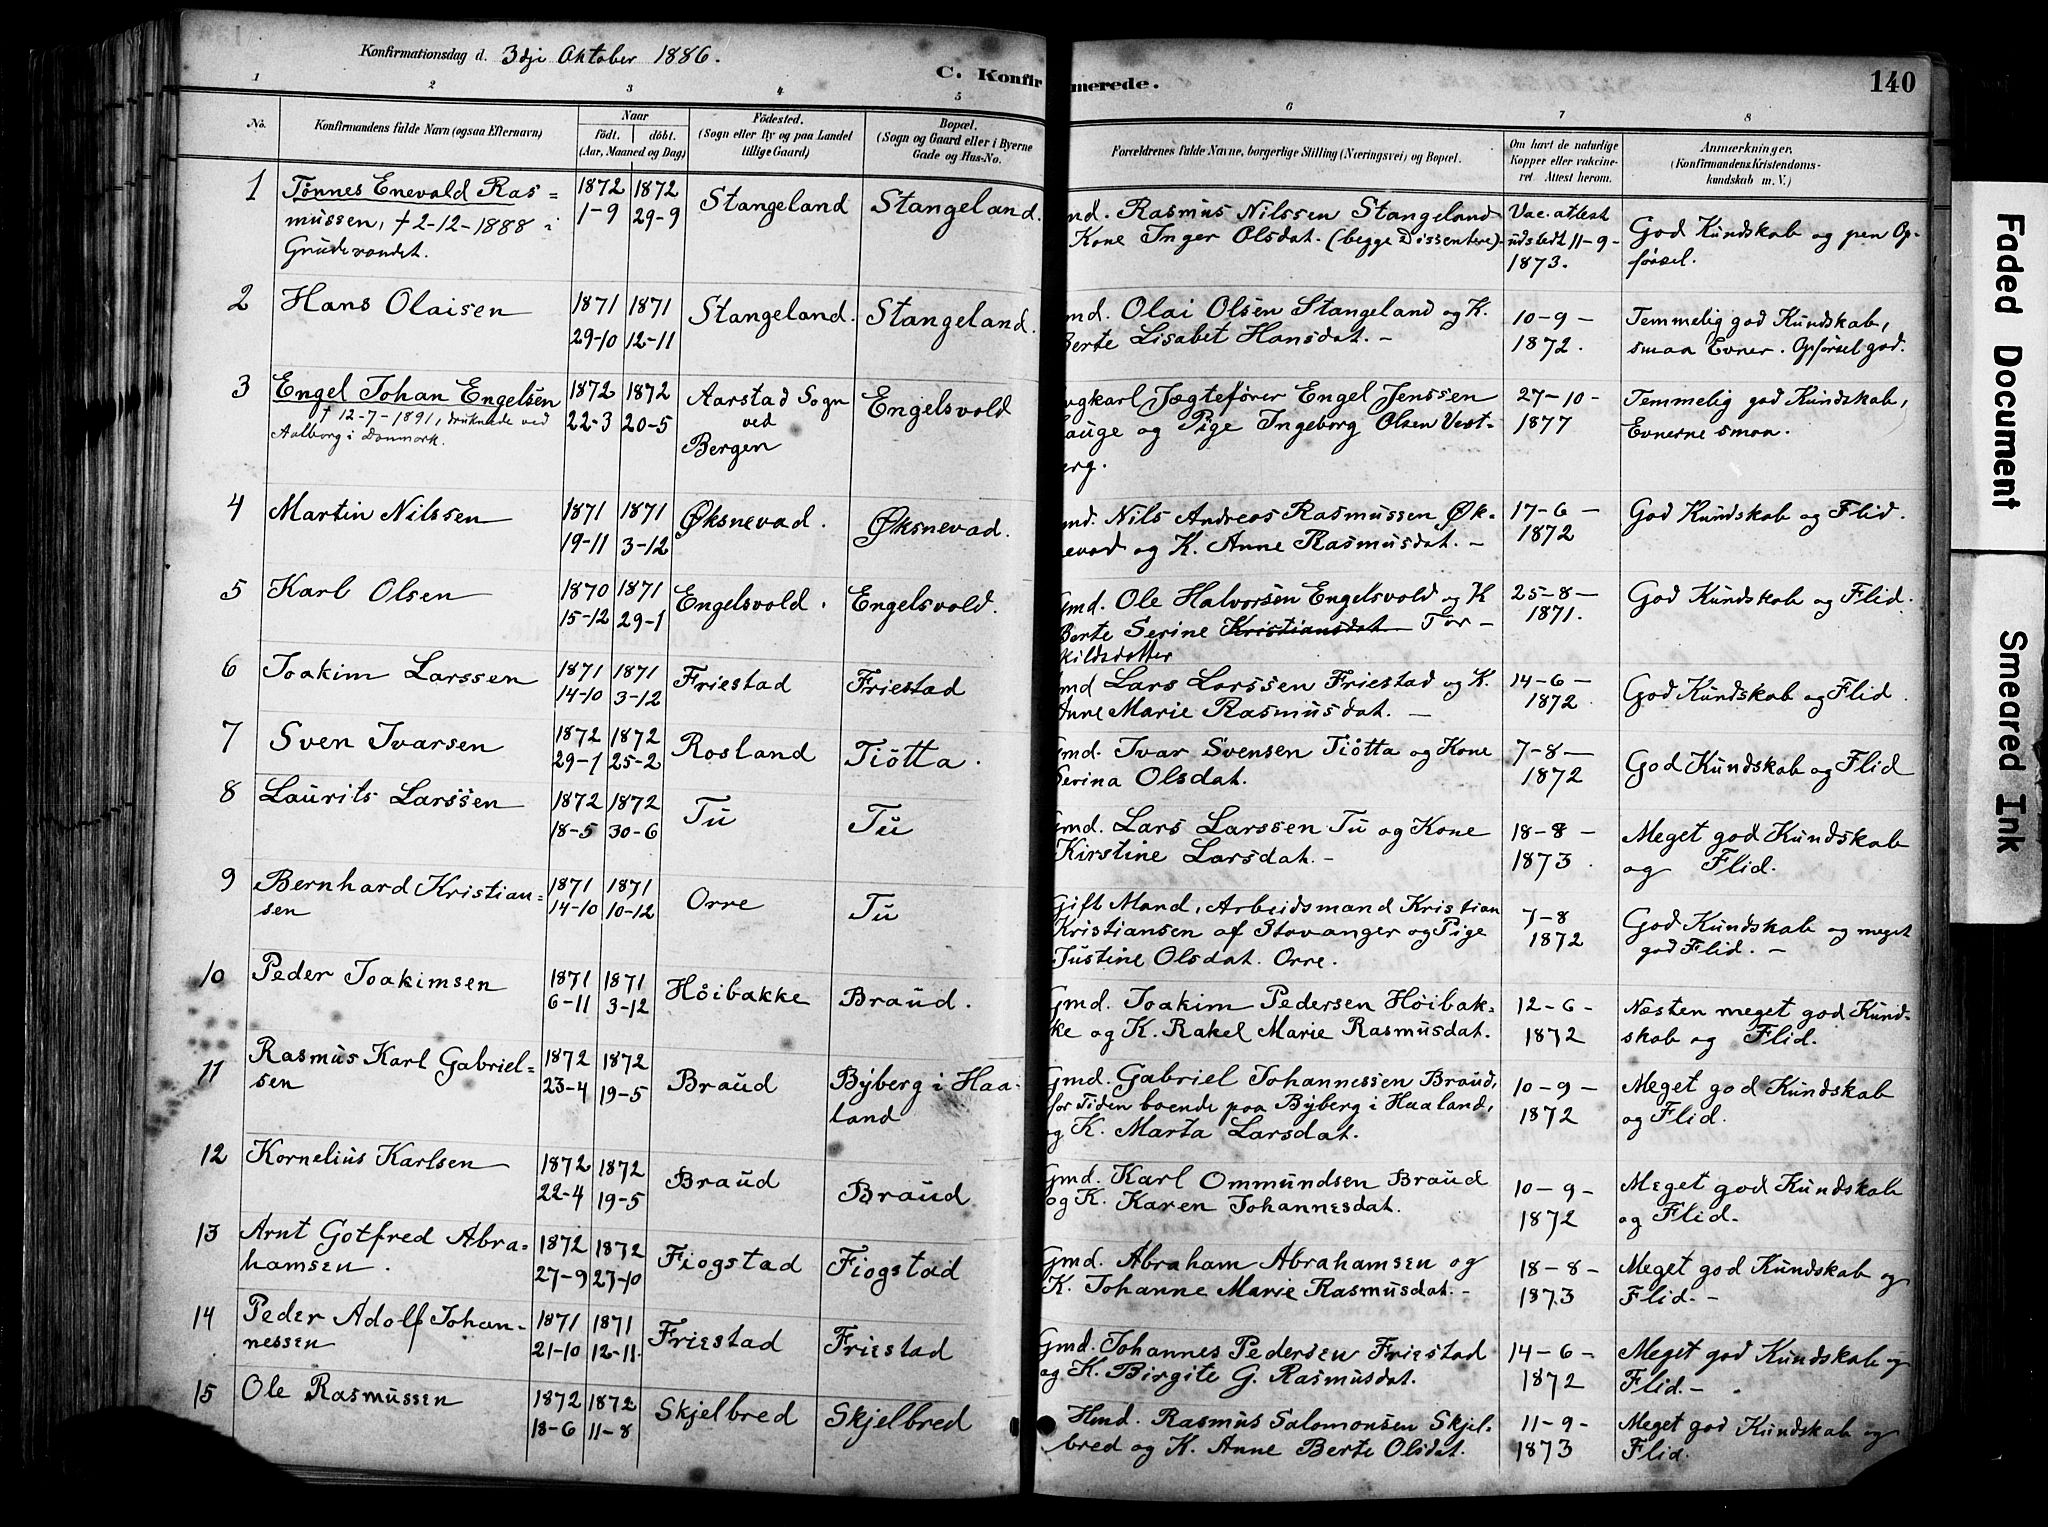 Konfirmationsdag d. 3dji Oktober 1886.
C. Konfirmerede.
140
1 2 3 4 5 6 7 8
No.
Konfirmandens fulde Navn (ogsaa Efternavn)
Naar
födt. döbt.
(Aar, Maaned og Dag)
Födested.
(Sogn eller By og paa Landet
tillige Gaard)
Bopæl.
(Sogn og Gaard eller i Byerne
Gade og Hus-No.
Forældrenes fulde Navne, borgerlige Stilling (Næringsvei) og Bopæl.
Om havt de naturlige
Kopper eller vakcine-
ret. Attest herom.
Anmærkninger.
(Konfirmandens Kristendoms-
kundskab m. V.)
1
Tønnes Enevald Ras-
mussen, † 2-12-1888 i
Grudevandet.
1872 1872
1-9 29-9
Stangeland
Stangeland.
md. Rasmus Nilssen Stangeland
Kone Inger Olsdat. (begge Dissentere).
Vac. attest
udstedt 11-9-
1873.
God Kundskab og pen Op-
førsel.
2
Hans Olaisen
1871 1871
29-10 12-11
Stangeland.
Stangeland.
md. Olai Olsen Stangeland og K.
Berte Lisabet Hansdat. -
10-9-
1872.
Temmelig god Kundskab,
smaa Evner. Opførsel god.
3
Engel Johan Engelsen
† 12-7-1891, druknede ved
Aalborg i Danmark.
1872 1872
22-3 20-5
Aarstad Sogn
ved
Bergen
Engelsvold
ugkarl Jægtefører Engel Jenssen
auge og Pige Ingeborg Olsen Vest-
erg.
27-10-
1877
Temmelig god Kundskab,
Evnerne smaa.
4
Martin Nilssen
1871 1871
19-11 3-12
Øksnevad.
Øksnevad.
md. Nils Andreas Rasmussen Øk-
evad og K. Anne Rasmusdat. -
17-6-
1872
God Kundskab og Flid.
5
Karl Olsen
1870 1871
15-12 29-1
Engelsvold.
Engelsvold.
Gmd. Ole Halvorsen Engelsvold og K
Berte Serine Kristiansdat Tor-
kildsdatter
25-8-
1871.
God Kundskab og Flid.
6
Joakim Larssen
1871 1871
14-10 3-12
Friestad
Friestad
md Lars Larssen Friestad og K.
Anne Marie Rasmusdat. -
14-6-
1872.
God Kundskab og Flid.
7
Sven Ivarsen
1872 1872
29-1 25-2
Rosland
Tiötta.
Gmd. Ivar Svensen Tiötta og Kone
Serina Olsdat.
7-8-
1872
God Kundskab og Flid
8
Laurits Larssen
1872 1872
18-5 30-6
Tu
Tu
Gmd. Lars Larssen Tu og Kone
Kirstine Larsdat. -
18-8-
1873.
Meget god Kundskab
og Flid.
9
Bernhard Kristian-
sen
1871 1871
14-10 10-12
Orre
Tu
Gift Mand, Arbeidsmand Kristian
Kristiansen af Stavanger og Pige
Justine Olsdat. Orre.
7-8
1872
God Kundskab og meget
god Flid. -
10
Peder Joakimsen
1871 1871
6-11 3-12
Höibakke
Braud.
Gmd. Joakim Pedersen Höibak-
ke og K. Rakel Marie Rasmusdat.
12-6-
1872
Næsten meget god Kund-
skab og Flid.
11
Rasmus Karl Gabriel-
sen
1872 1872
23-4 19-5
Braud
Byberg i Haa-
land
Gmd. Gabriel Johannessen Braud,
for Tiden boende paa Byberg i Haaland,
og K. Marta Larsdat.
10-9-
1872
Meget god Kundskab
og Flid.
12
Kornelius Karlsen
1872 1872
22-4 19-5
Braud
Braud
Gmd. Karl Ommundsen Braud
og K. Karen Johannesdat.
10-9-
1872
Meget god Kundskab
og Flid.
13
Arnt Gotfred Abra-
hamsen.
1872 1872
27-9 27-10
Fiogstad
Fiogstad
Gmd. Abraham Abrahamsen og
K. Johanne Marie Rasmusdat. -
18-8-
1873
Meget god Kundskab og
Flid. -
14
Peder Adolf Johan-
nessen
1871 1871
21-10 12-11.
Friestad
Friestad
Gmd. Johannes Pedersen Friestad
og K. Birgite G. Rasmusdat.
14-6-
1872
Meget god Kundskab og
Flid. -
15
Ole Rasmussen
1872 1872
18-6 11-8
Skjelbred
Skjelbred
Hmd. Rasmus Salomonsen Skjel-
bred og K. Anne Berte Olsdat.
11-9-
1873
Meget god Kundskab og
Flid.
Faded Document
Smeared Ink